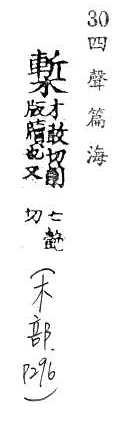 30四聲篇海
槧
才敢切削
版牘也又
七豔
切
(木部P296)